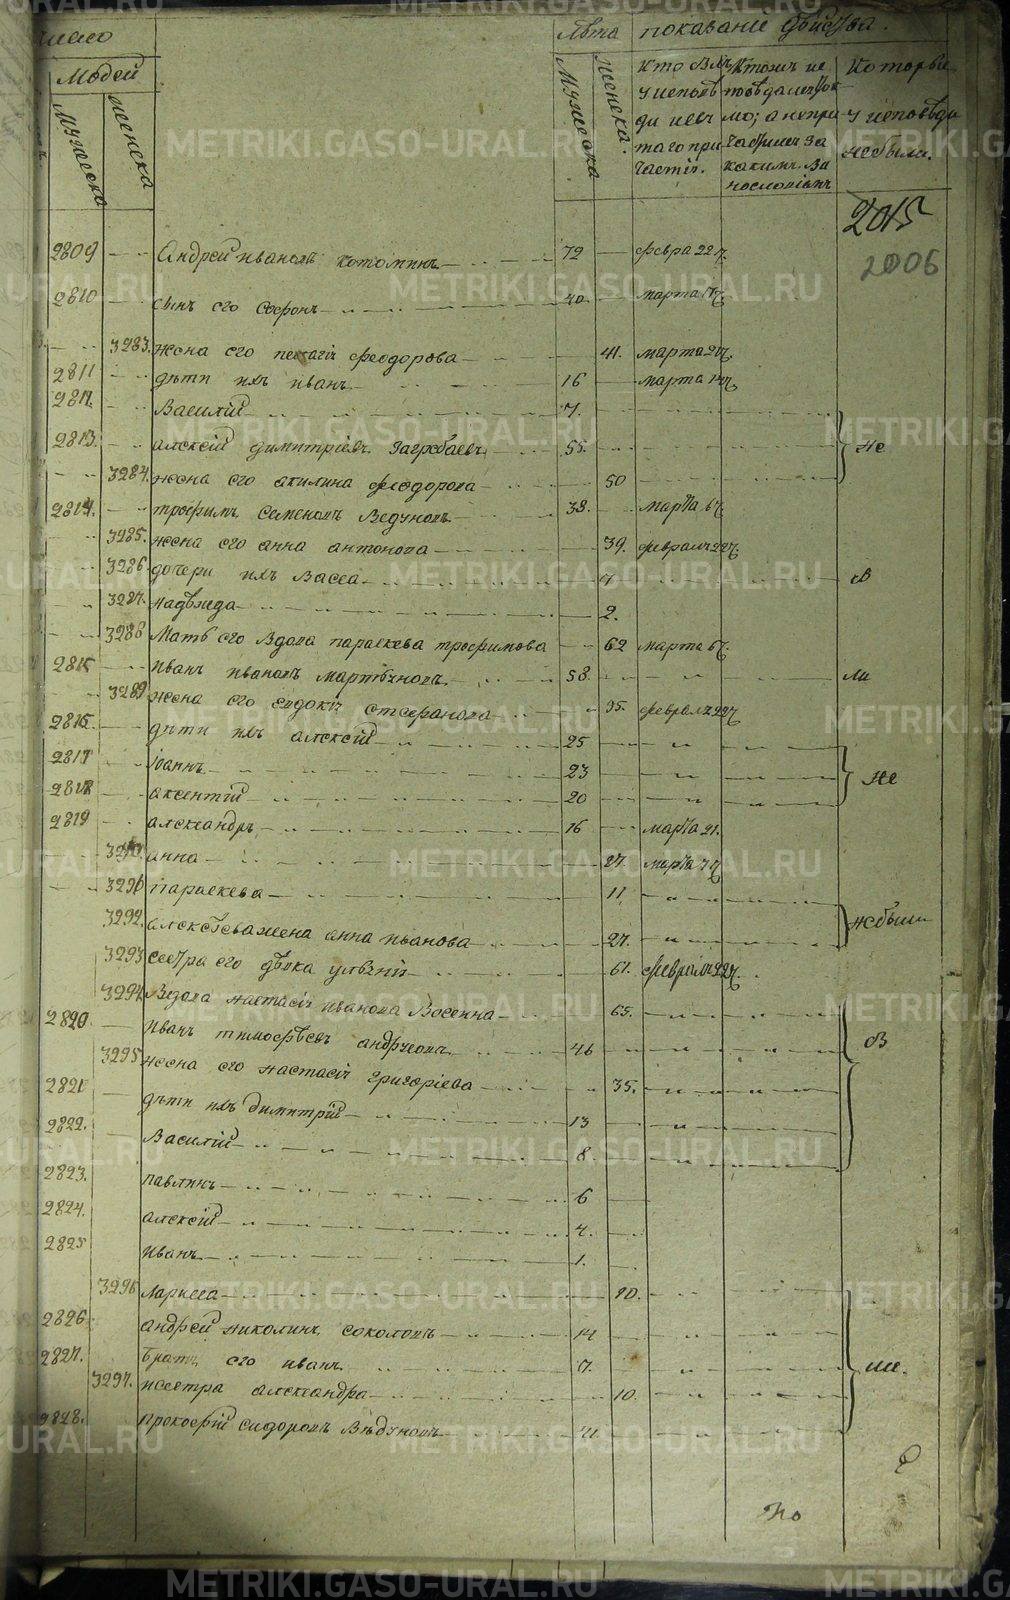 Число
Лѣта показаніе дѣйства.
Людей
Мужеска
Женска
Мужеска
Женска.
Кто былъ у исповѣди и св. таго причастія.
Кто же исповѣдался токмо; а не причастился за какимъ винословіемъ
Которые у исповѣди не были.
2015
2006
2809 Андрей ивановъ котоминъ 72 февра 22 ч.
2810 сынъ его Софронъ 40. марта 17 ч.
3283. жена его пелагія феодорова 41. марта 20 ч.
2811 дѣти ихъ иванъ 16 марта 14 ч.
281. Василій 7.
2813. алексій димитріевъ Загребаевъ 55. не
3284. жена его акилина феодорова 50
2814. трофимъ семеновъ Ведуновъ 38. марта 6 ч.
3285. жена его анна антонова 39. февраля 22 ч.
3286 дочери ихъ Васса 7
3287. надѣжда 2.
3288 Мать его вдова параскева трофимова 62 марта 6 ч.
2815 иванъ ивановъ мартъяновъ 58.
3289 жена его евдокія стефанова 35. февраля 22 ч.
2816. дѣти ихъ алексій 25
2817 іоаннъ 23 не
2818 аксентій 20
2819 александръ 16 марта 21.
анна 27. марта 7 ч
параскева 11
3292. алексѣева жена анна иванова 27. не были
3293 сестра его дѣвка улянія 61. февраля 22 ч.
3294 Вдова настасія иванова 65.
2820. иванъ тимоѳѣевъ андреовъ 46 В
3295 жена его настасія григоріева 35.
2821 дѣти ихъ димитрій 13
2822. Василій 8
2823. павлинъ 6
2824. алексій 4.
2825 иванъ 1.
3296 Ларисса 10.
2826 андрей николинъ соколовъ 14
2827. братъ его иванъ 7. ше.
3297. сестра александра 10.
2828. прокофій сидоровъ Вѣдуновъ
По